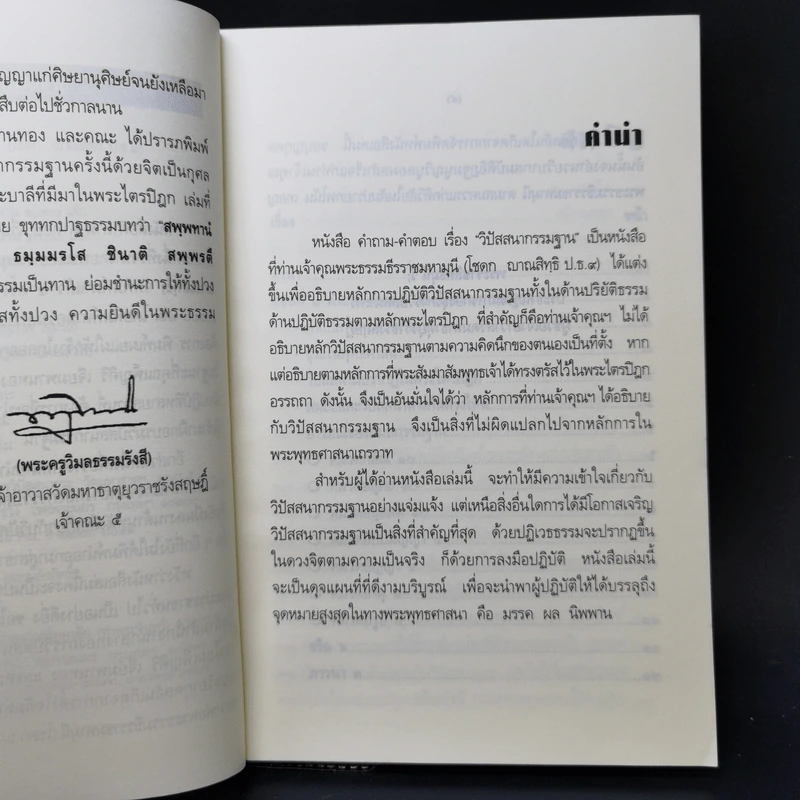 ญญาแก่ศิษยานุศิษย์จนยังเหลือมา
สืบต่อไปชั่วกาลนาน
านทอง และคณะ ได้ปรารภพิมพ์
ากรรมฐานครั้งนี้ด้วยจิตเป็นกุศล
ะบาลีที่มีมาในพระไตรปิฎก เล่มที่
าย ขุททกปาฐธรรมบทว่า "สพฺพทานํ
ธมฺมมรโส ชินาติ สพฺพรตึ
รรมเป็นทาน ย่อมชำนะการให้ทั้งปวง
สทั้งปวง ความยินดีในพระธรรม
(พระครูวิมลธรรมรังสี)
จ้าอาวาสวัดมหาธาตุยุวราชรังสฤษฎิ์
เจ้าคณะ ๕
คำนำ
หนังสือ คำถาม-คำตอบ เรื่อง "วิปัสสนากรรมฐาน" เป็นหนังสือ
ที่ท่านเจ้าคุณพระธรรมธีรราชมหามุนี (โชดก ญาณสิทฺธิ ป.ธ.๙) ได้แต่ง
ขึ้นเพื่ออธิบายหลักการปฏิบัติวิปัสสนากรรมฐานทั้งในด้านปริยัติธรรม
ด้านปฏิบัติธรรมตามหลักพระไตรปิฎก ที่สำคัญก็คือท่านเจ้าคุณฯ ไม่ได้
อธิบายหลักวิปัสสนากรรมฐานตามความคิดนึกของตนเองเป็นที่ตั้ง หาก
แต่อธิบายตามหลักการที่พระสัมมาสัมพุทธเจ้าได้ทรงตรัสไว้ในพระไตรปิฎก
อรรถถา ดังนั้น จึงเป็นอันมั่นใจได้ว่า หลักการที่ท่านเจ้าคุณฯ ได้อธิบาย
กับวิปัสสนากรรมฐาน จึงเป็นสิ่งที่ไม่ผิดแปลกไปจากหลักการใน
พระพุทธศาสนาเถรวาท
สำหรับผู้ได้อ่านหนังสือเล่มนี้ จะทำให้มีความเข้าใจเกี่ยวกับ
วิปัสสนากรรมฐานอย่างแจ่มแจ้ง แต่เหนือสิ่งอื่นใดการได้มีโอกาสเจริญ
วิปัสสนากรรมฐานเป็นสิ่งที่สำคัญที่สุด ด้วยปฏิเวธธรรมจะปรากฏขึ้น
ในดวงจิตตามความเป็นจริง ก็ด้วยการลงมือปฏิบัติ หนังสือเล่มนี้
จะเป็นดุจแผนที่ที่ดีงามบริบูรณ์ เพื่อจะนำพาผู้ปฏิบัติให้ได้บรรลุถึง
จุดหมายสูงสุดในทางพระพุทธศาสนา คือ มรรค ผล นิพพาน